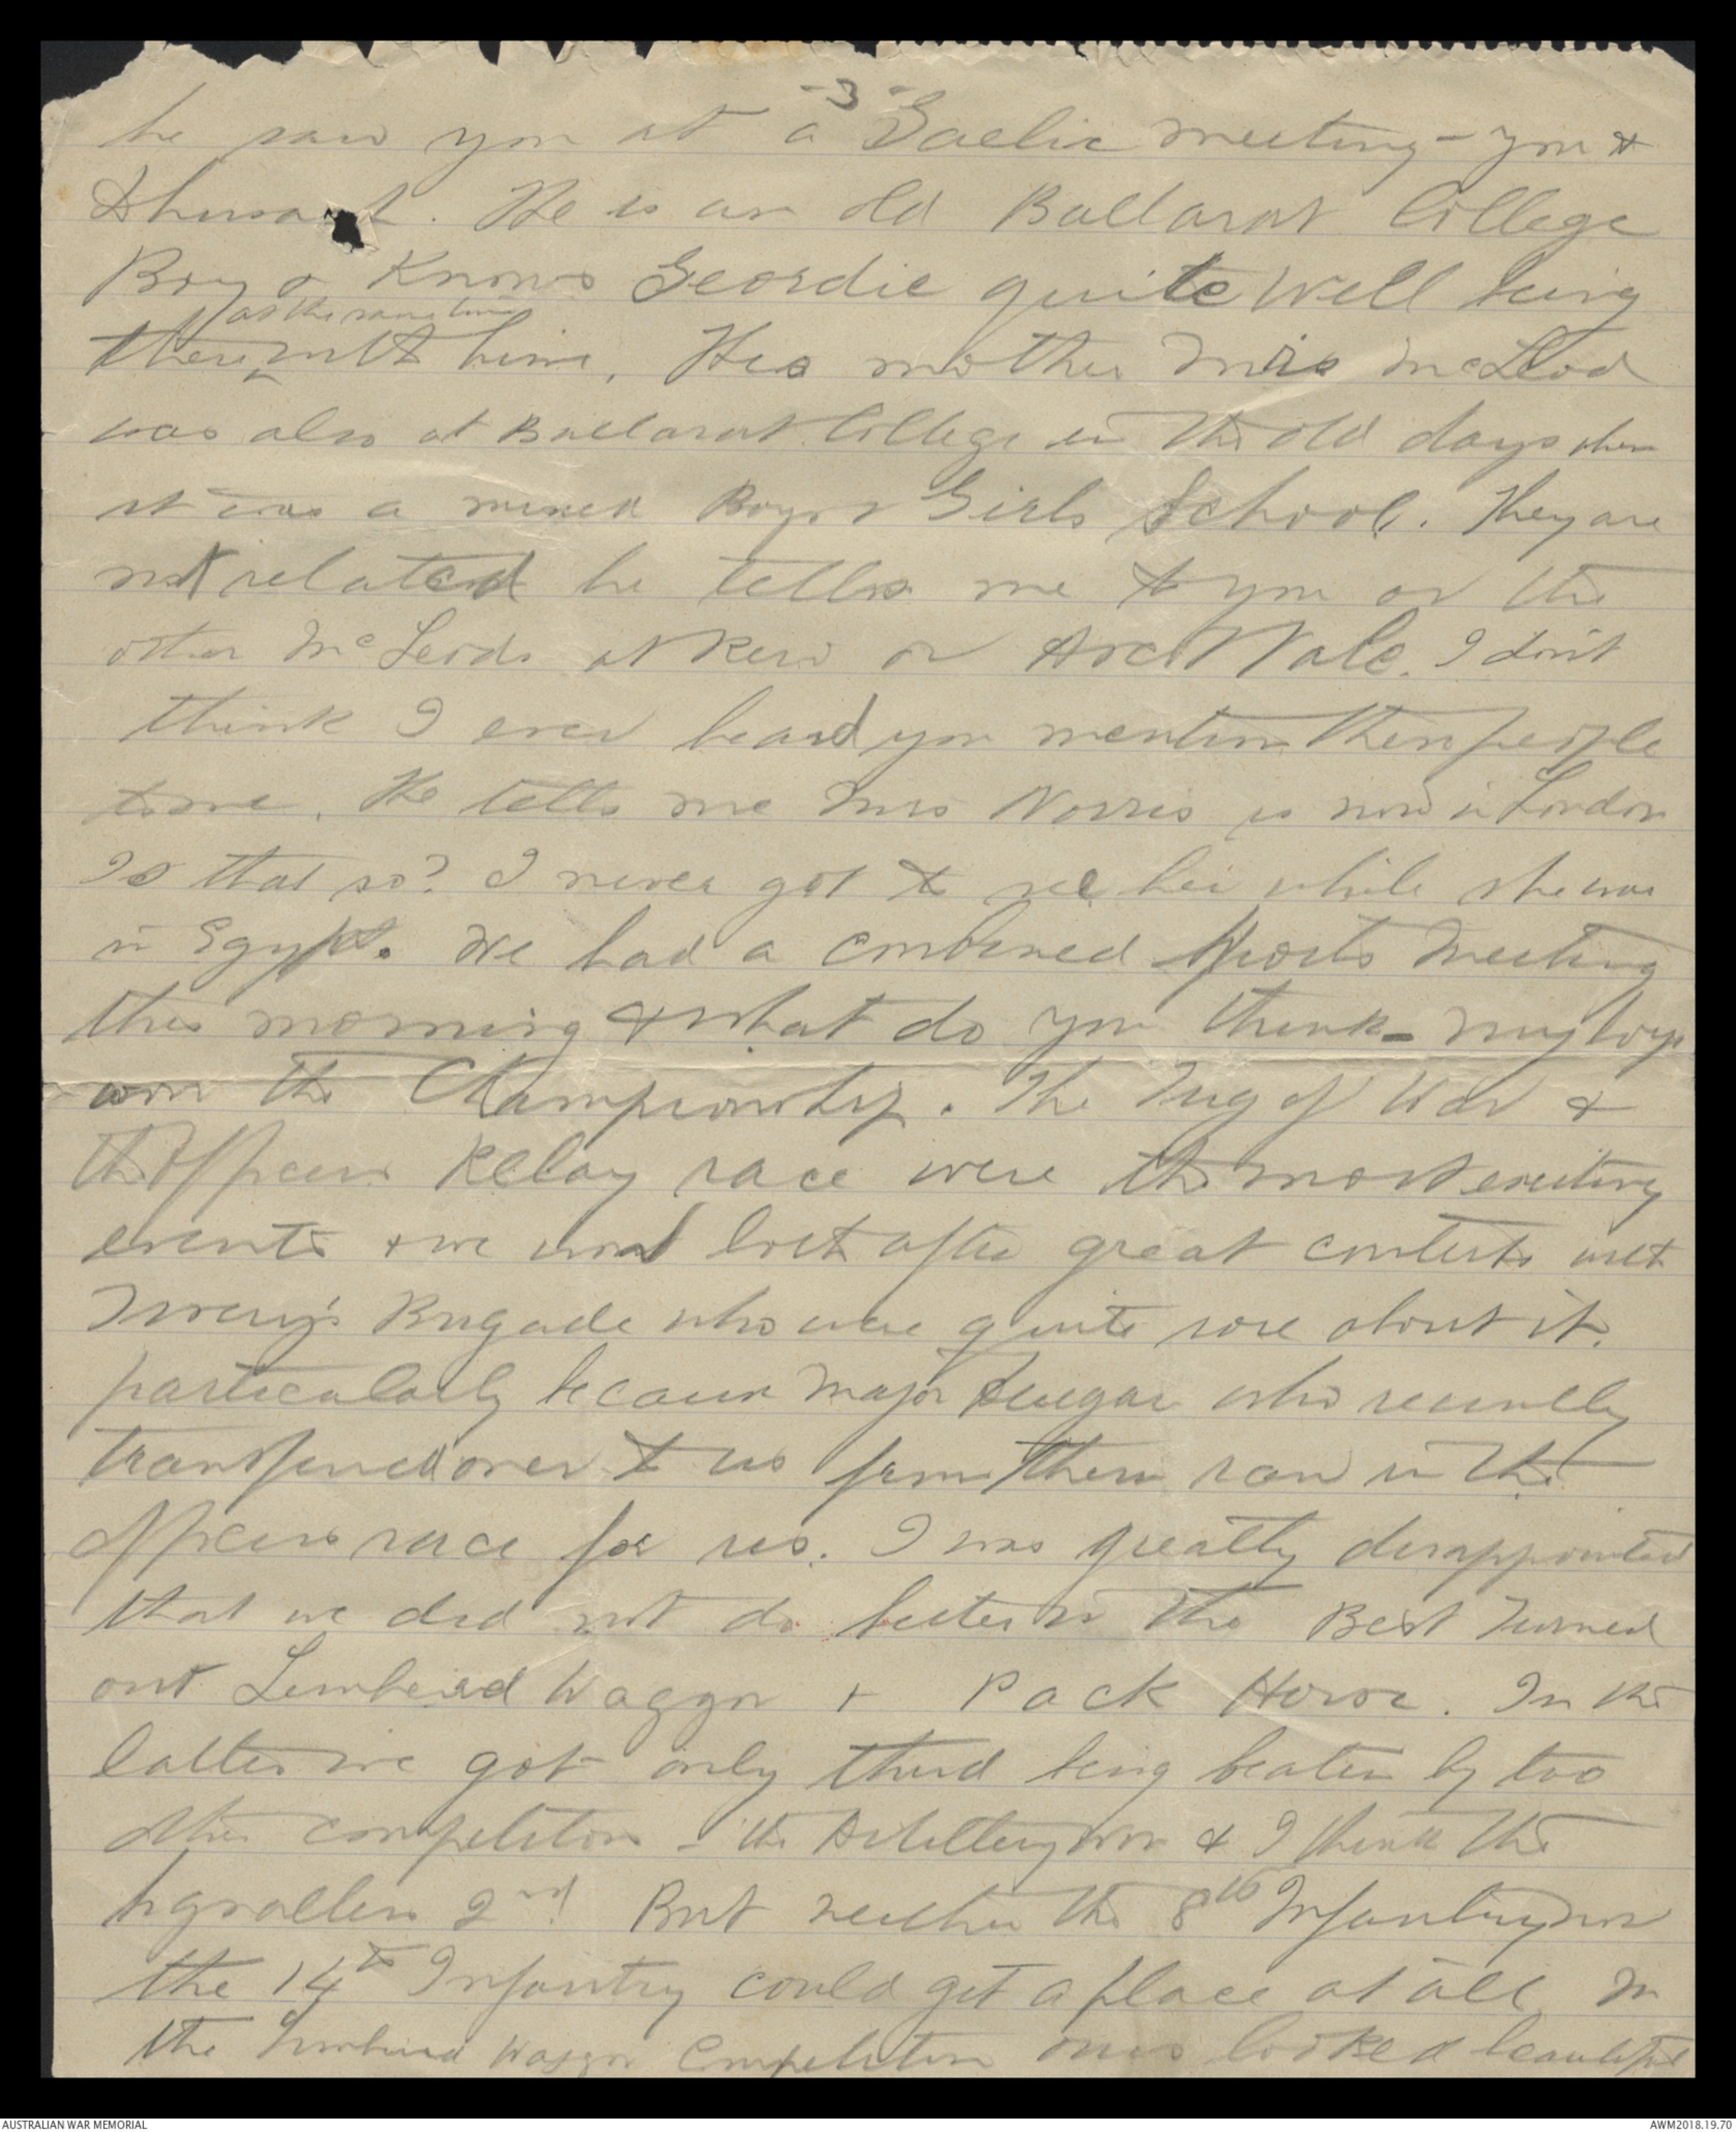 -3-
he saw you at a Gaelic meeting - you &
. He is an old Ballarat College
Boy & Knows Geordie quite well being
at the same time
there with him. His mother Mrs McLeod
was also at Ballarat College in the old days when
it was a mixed Boys & Girls School. They are
not related he tells me to you or the
other McLeods at Kew or Vale. I don't
think I ever heard you mention these people
to me. He tells me Mrs Norris is now in London
Is that so? I never got to see her while she was
in Egypt. We had a combined Sports Meeting
this morning & what do you think - my boys
won the Championship. The Tug of War &
the Officers Relay race were the most exciting
events & we won both after great contests with
Tivey's Brigade who were quite sore about it.
particularly because Major who recently
transferred over to us from them ran in the
Officers race for us. I was greatly disappointed
that we did not do better in the Best Turned
out Limbered Waggon & Pack Horse. In the
latter we got only third being beaten by two
other competitors - the Artillery won & I think the
Signallers 2nd. But neither the 8th Infantry nor
the 14th Infantry could get a place at all. In
the Limbered Waggon Competition ours looked beautiful
AUSTRALIAN WAR MEMORIAL
AWM2018.19.70